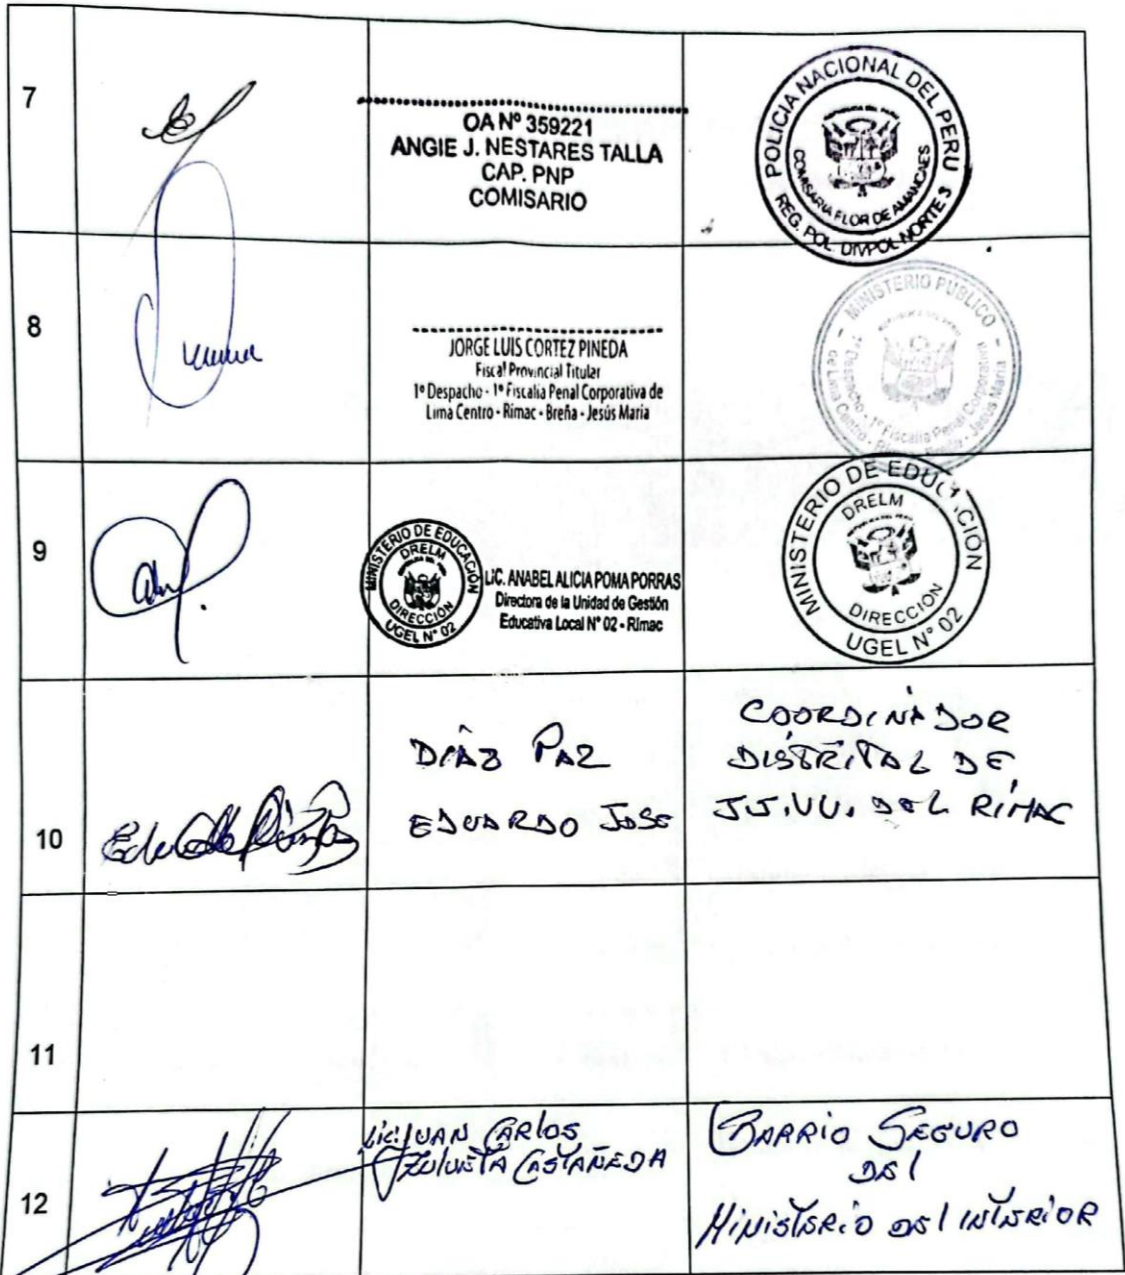 7
OA Nº 359221
ANGIE J. NESTARES TALLA
CAP. PNP
COMISARIO
POLICIA NACIONAL DEL PERU
COMISARIA FLOR DE AMANCAES
REG. POL. DIVPOL NORTE 3
8
JORGE LUIS CORTEZ PINEDA
Fiscal Provincial Titular
1º Despacho - 1º Fiscalia Penal Corporativa de
Lima Centro - Rimac - Breña - Jesús Maria
MINISTERIO PÚBLICO
1º Despacho - 1º Fiscalia Penal Corporativa
de Lima Centro - Rimac - Breña - Jesús Maria
9
MINISTERIO DE EDUCACIÓN
DRELM
DIRECCIÓN
UGEL N° 02
LIC. ANABEL ALICIA POMA PORRAS
Directora de la Unidad de Gestión
Educativa Local N° 02 - Rimac
MINISTERIO DE EDUCACIÓN
DRELM
DIRECCIÓN
UGEL N° 02
10
DIAZ PAZ
EDUARDO JOSE
COORDINADOR
DISTRITAL DE
JJ.VV. DEL RIMAC
11
12
Lic. JUAN CARLOS
ZULUETA CASTAÑEDA
BARRIO SEGURO
DEl
MINISTERIO DEl INTERIOR